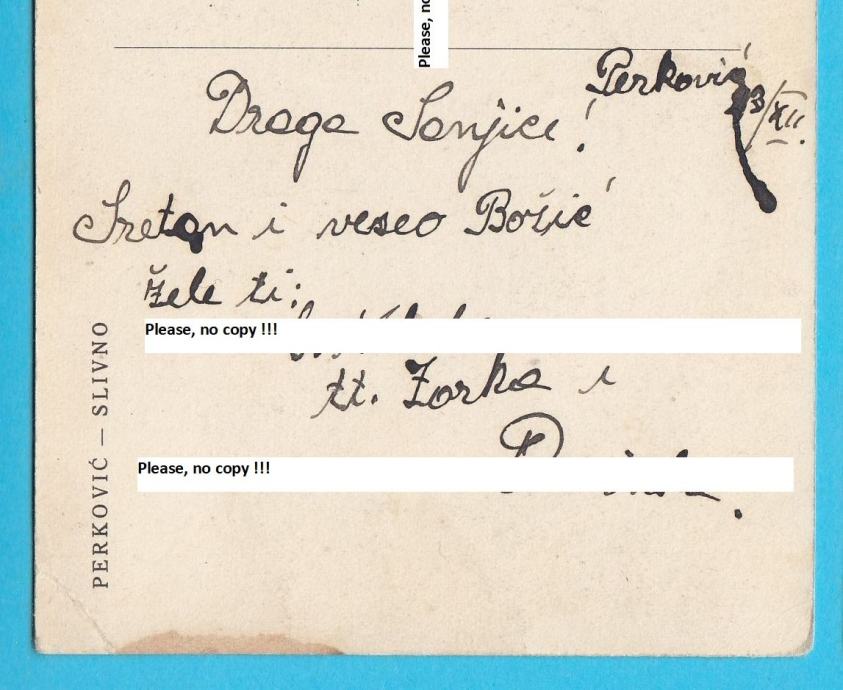 Please, no
Perković
23/XII.
Draga Sonjice!
Sretan i veseo Božić
žele ti:
Please, no copy !!!
tt. Zorka i
Please, no copy !!!
PERKOVIĆ — SLIVNO